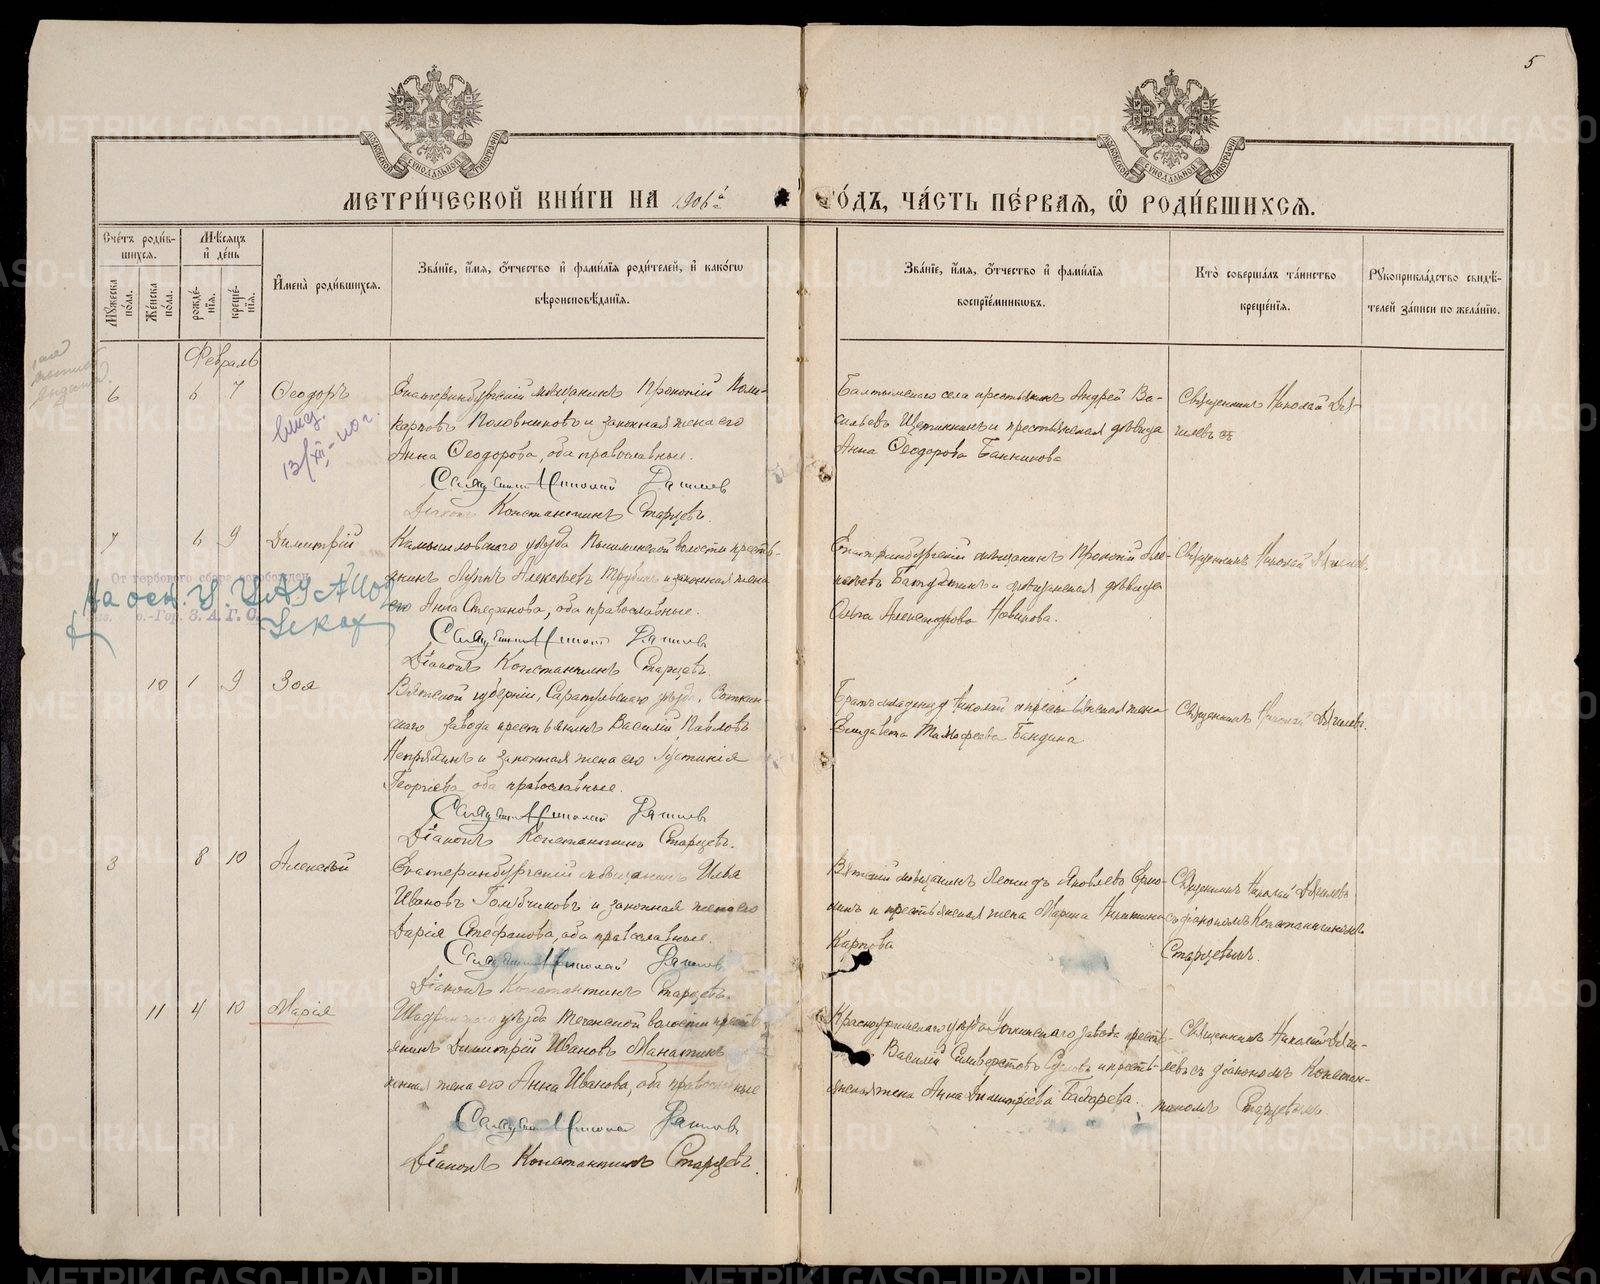 5
МОСКОВСКОЙ СѴНОДАЛЬНОЙ ТИПОГРАФІИ
МОСКОВСКОЙ СѴНОДАЛЬНОЙ ТИПОГРАФІИ
МЕТРИ́ЧЕСКОЙ КНИ́ГИ НА 1906й
О́ДЪ, ЧА́СТЬ ПЕ́РВАЯ, Ѡ РОДИ́ВШИХСЯ.
Сче́тъ роди́в-
шихся.
Мѣсяцъ
и де́нь
Мꙋжеска по́ла.
Же́нска по́ла.
рожде́-
нія.
креще́-
нія.
Имена̀ роди́вшихся.
Зва́ніе, и́мя, о́тчество и фами́лія роди́телей, и како́гѡ
вѣроисповѣ́данія.
Зва́ніе, и́мя, о́тчество и фами́лія
воспріе́мникѡвъ.
Кто̀ соверша́лъ та́инство
креще́нія.
Рꙋкоприкла́дство свидѣ́-
телей за́писи по жела́нію.
Февраль
6 6 7 Ѳеодоръ
13/XII-40 г.
Екатеринбургскій мѣщанинъ Прокопій Поли-
карповъ Половниковъ и законная жена его
Анна Ѳеодорова, оба православные.
Священникъ Николай Дягилев
Діаконъ Константинъ Старцевъ.
Балтымскаго села крестьянинъ Андрей Ва-
сильевъ Щетинкинъ и крестьянская дѣвица
Анна Ѳеодорова Банникова
Священникъ Николай Дя-
гилевъ
7 6 9 Димитрій
Камышловскаго уѣзда Пышминской волости кресть-
янинъ Луппъ Алексѣевъ и законная жена
его Анна Стефанова, оба православные.
Священникъ Николай Дягилевъ
Діаконъ Константинъ Старцевъ
Екатеринбургскій мѣщанинъ Прокопій
и мѣщанская дѣвица
Ольга Александрова Новикова.
Священникъ Николай Дягилевъ
От гербового сбора
На осн.
Гор. З.А.Г.С.
10 1 9 Зоя
Вятской губерніи, Сарапульскаго уѣзда, Воткин-
скаго завода крестьянинъ Василій Павловъ
Непряхинъ и законная жена его Іустинія
Георгіева, оба православные.
Священникъ Николай Дягилевъ
Діаконъ Константинъ Старцевъ.
Братъ младенца Николай и крестьянская жена
Елизавета Тимофеева Бандина
Священникъ Николай Дягилевъ.
8 8 10 Алексѣй
Екатеринбургскій мѣщанинъ Илья
Ивановъ Голубчиковъ и законная жена его
Дарія Стефанова, оба православные.
Священникъ Николай Дягилев
Діаконъ Константинъ Старцевъ.
Вятскій мѣщанинъ Леонидъ Яковлевъ Ермо-
инъ и крестьянская жена Марина Никитина
Карпова
Священникъ Николай Дягилевъ
съ діакономъ Константиномъ
Старцевымъ.
11 4 10 Марія
Шадринскаго уѣзда Теченской волости кресть-
янинъ Димитрій Ивановъ Манатинъ
жена его Анна Иванова, оба православные
Священникъ Николай Дягилевъ
Діаконъ Константинъ Старцевъ.
Красноуфимскаго уѣзда завода кресть-
Василій Сильверстовъ и кресть-
янская жена Анна Димитріева Бахарева.
Священникъ Николай Дяги-
левъ съ діакономъ Констан-
тиномъ Старцевымъ.
METRIKI.GASO-URAL.RU